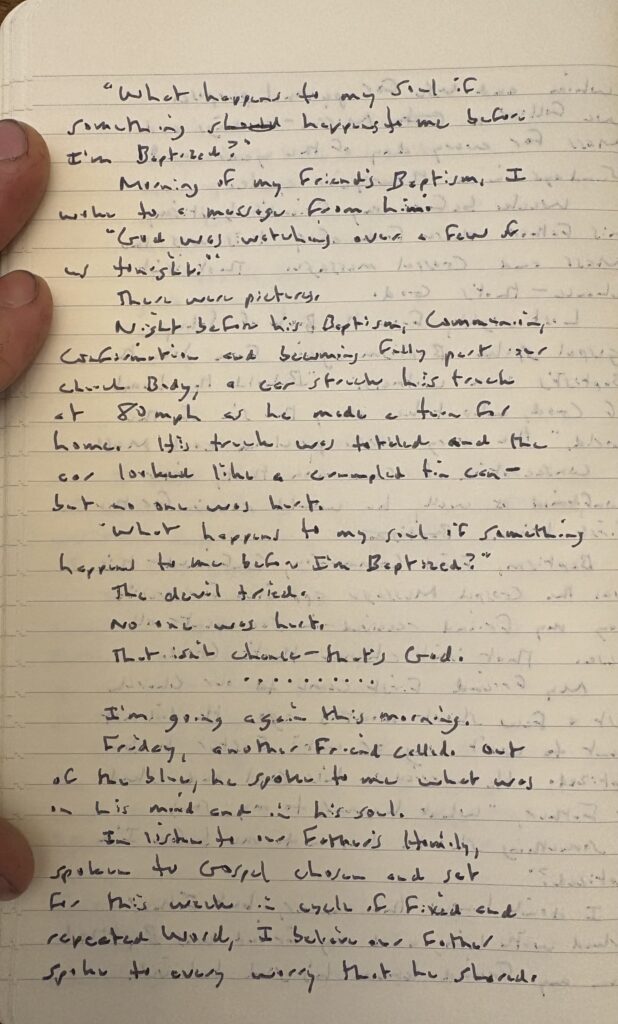 "What happens to my soul if
something should happens to me before
I'm Baptized?"
Morning of my friend's Baptism, I
woke to a message from him:
"God was watching over a few of
us tonight."
There were pictures.
Night before his Baptism, Communion,
Confirmation and becoming fully part our
church Body, a car struck his truck
at 80 mph as he made a turn for
home. His truck was totaled and the
car looked like a crumpled tin can—
but no one was hurt.
"What happens to my soul if something
happens to me before I'm Baptized?"
The devil tried.
No one was hurt.
That isn't chance—that's God.
. . . . . . . . . .
I'm going again this morning.
Friday, another friend called. Out
of the blue, he spoke to me what was
on his mind and in his soul.
In listen to our Father's Homily,
spoken to Gospel chosen and set
for this week in cycle of fixed and
repeated Word, I believe our Father
spoke to every worry that he shared.